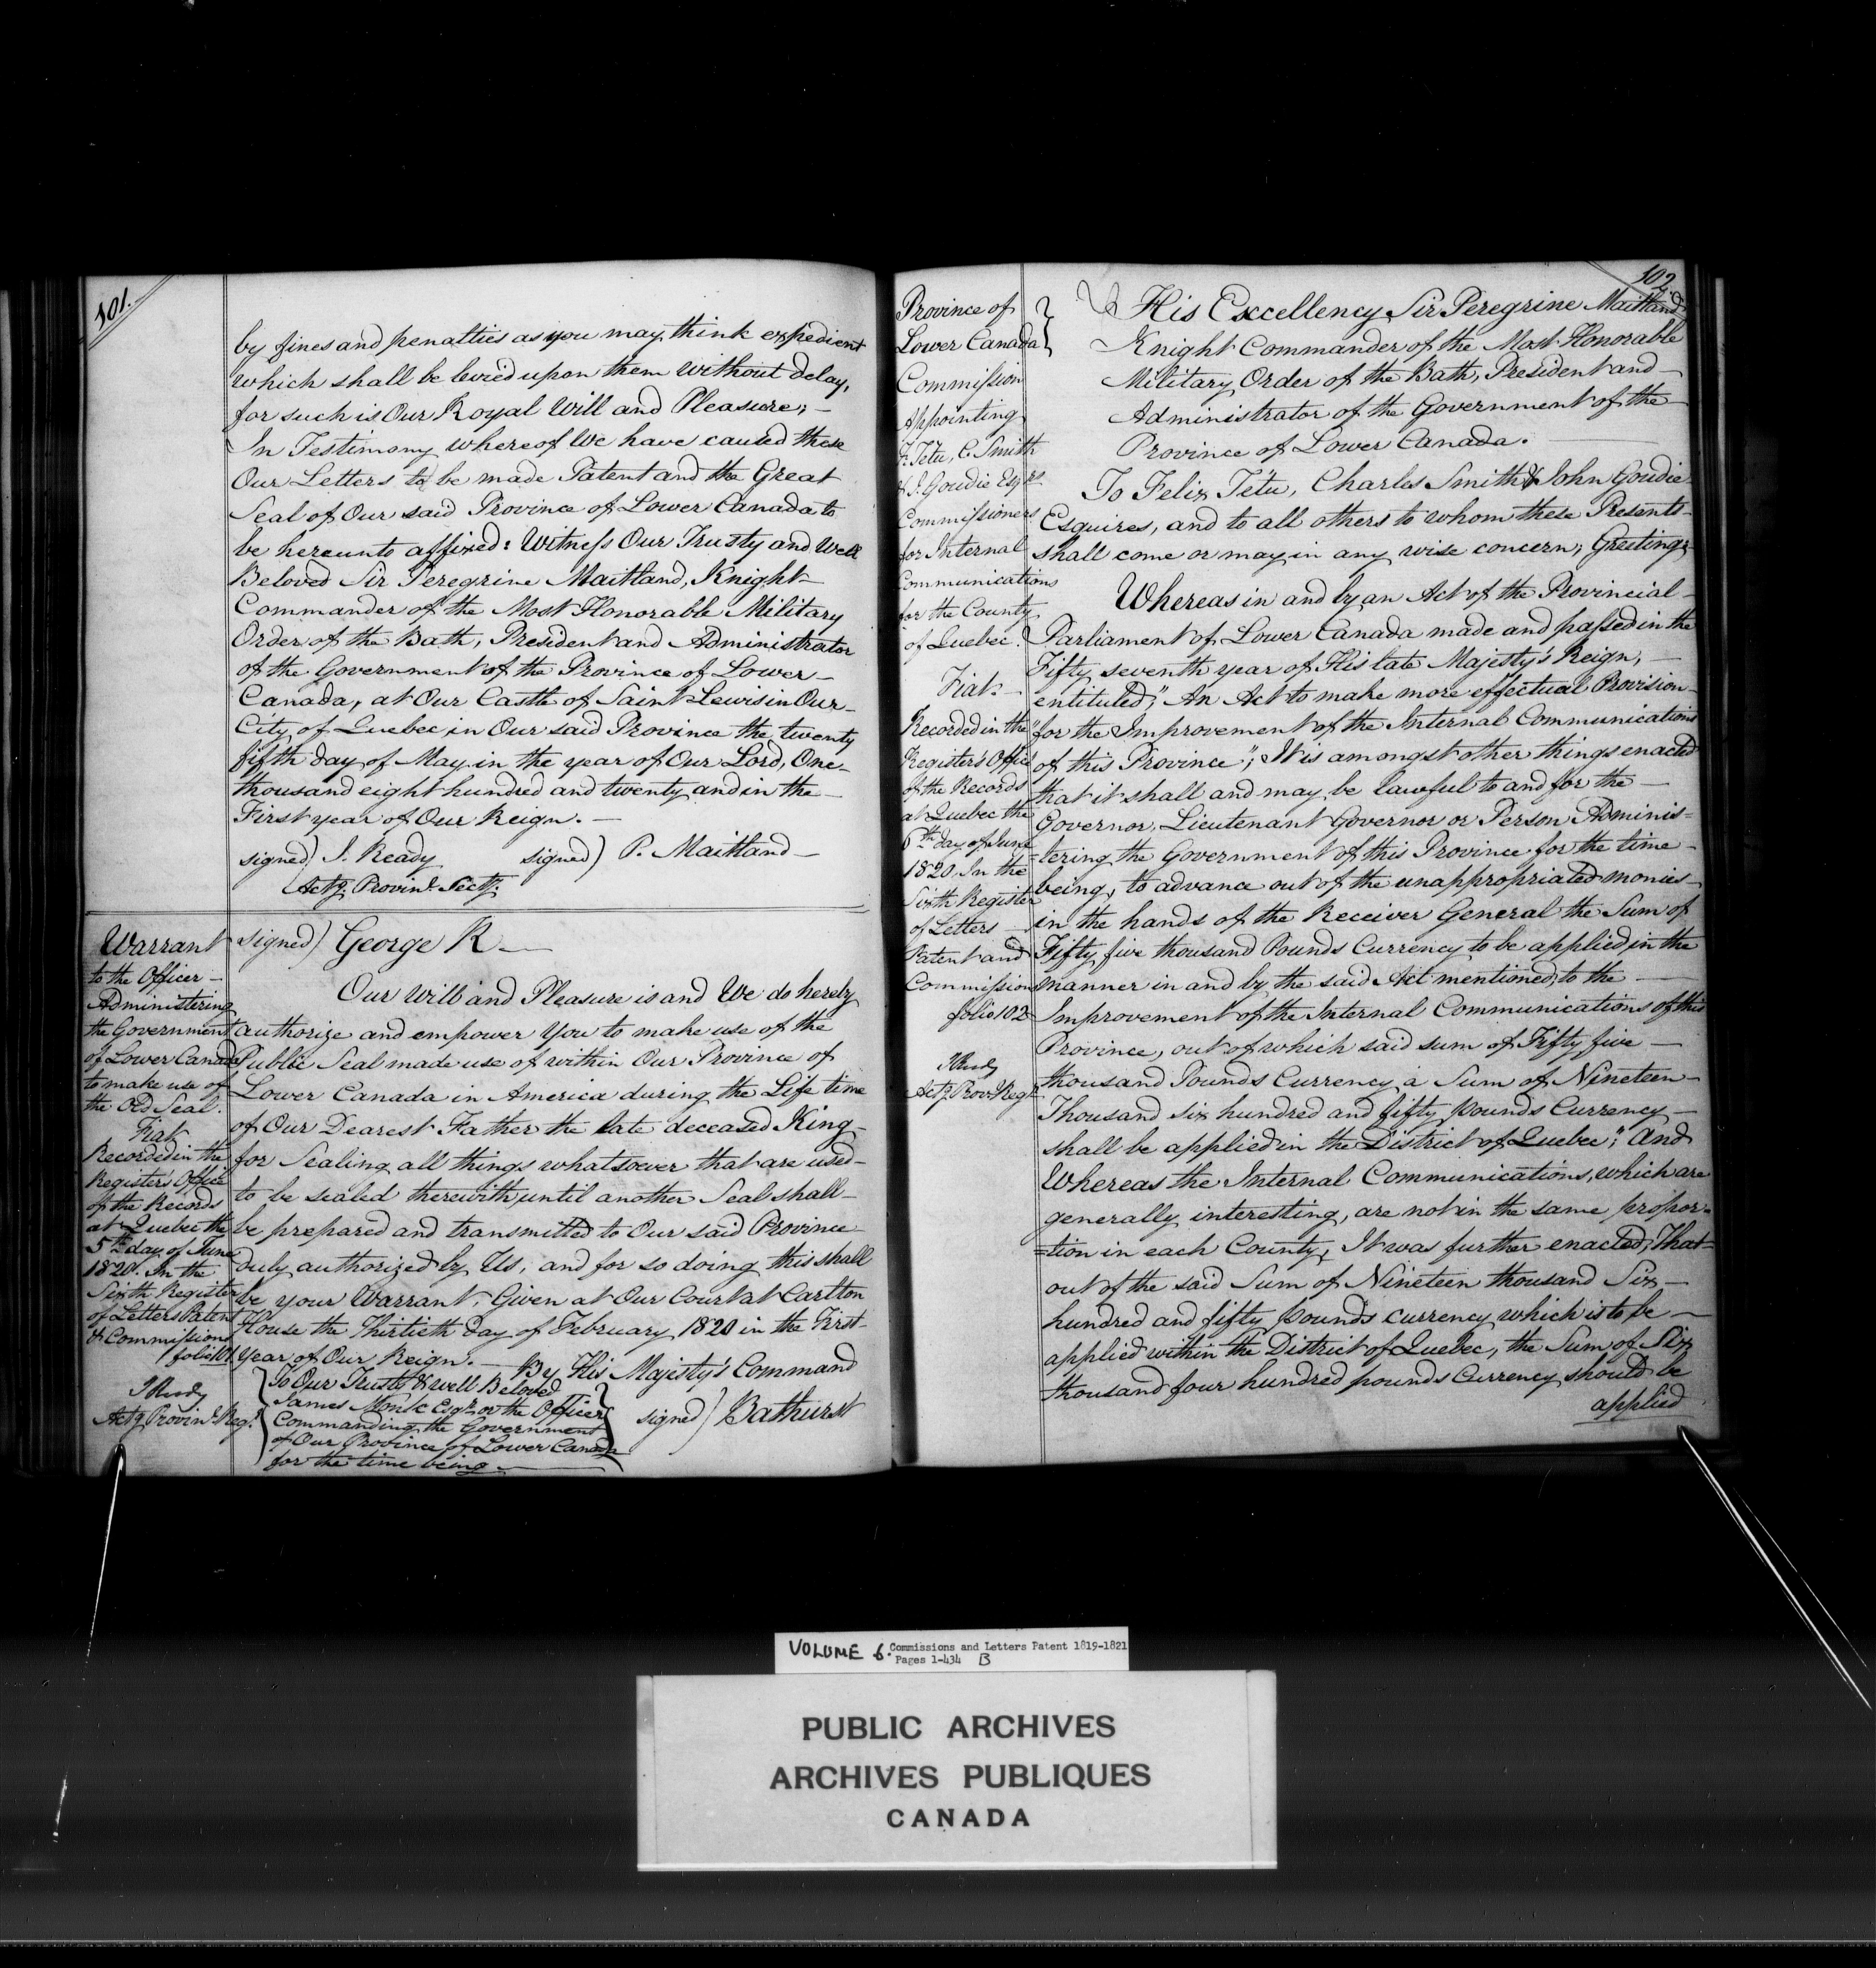 101.
by fines and penalties as you may think expedient
which shall be levied upon them without delay,
for such is Our Royal Will and Pleasure; —
In Testimony whereof We have caused these
Our Letters to be made Patent and the Great
Seal of Our said Province of Lower Canada to
be hereunto affixed: Witness Our Trusty and Well
Beloved Sir Peregrine Maitland, Knight
Commander of the Most Honorable Military
Order of the Bath, President and Administrator
of the Government of the Province of Lower —
Canada, at Our Castle of Saint Lewis in Our —
City of Quebec in Our said Province the twenty
fifth day of May in the year of Our Lord, One —
thousand eight hundred and twenty and in the —
First year of Our Reign. —
signed) J. Ready signed) P. Maitland —
Actg. Provinl. Secty.
Warrant
to the Officer —
Administering
the Government
of Lower Canada
to make use of
the Old Seal.
Fiat
Recorded in the
Register's Office
of the Records
at Quebec the
5th day of June
1820. In the
Sixth Register
of Letters Patent
& Commissions
folio 101
J Ready
Actg Provinl. Regr.
signed) George R —
Our Will and Pleasure is and We do hereby
authorize and empower You to make use of the
Public Seal made use of within Our Province of
Lower Canada in America during the Life time
of Our Dearest Father the late deceased King —
for Sealing all things whatsoever that are used —
to be sealed therewith, until another Seal shall —
be prepared and transmitted to Our said Province
duly authorized by Us; and for so doing this shall
be your Warrant. Given at Our Court at Carlton
House the Thirtieth day of February, 1820 in the First —
Year of Our Reign. — By His Majesty's Command
To Our Trusty & well Beloved
James Monk Esqr. or the Officer
Commanding the Government
of Our Province of Lower Canada
for the time being —
signed) Bathurst
102.
Province of
Lower Canada
Commission
Appointing
F. Tetu, C. Smith
& J. Goudie Esqrs
Commissioners
for Internal
Communications
for the County
of Quebec.
Fiat —
Recorded in the
Register's Office
of the Records
at Quebec the
6th day of June
1820. In the
Sixth Register
of Letters —
Patent and
Commissions
folio 102
J Ready
Actg. Prov. Regr.
His Excellency Sir Peregrine Maitland
Knight Commander of the Most Honorable
Military Order of the Bath, President and —
Administrator of the Government of the —
Province of Lower Canada. —
To Felix Tétu, Charles Smith & John Goudie
Esquires, and to all others to whom these Presents —
shall come or may in any wise concern; Greeting;
Whereas in and by an Act of the Provincial —
Parliament of Lower Canada made and passed in the
Fifty seventh year of His late Majesty's Reign, —
entituled, "An Act to make more effectual Provision —
"for the Improvement of the Internal Communications
of this Province"; It is amongst other things enacted
that it shall and may be lawful to and for the —
Governor, Lieutenant Governor or Person Adminis=
=tering the Government of this Province for the time —
being, to advance out of the unappropriated monies —
in the hands of the Receiver General the Sum of
Fifty five thousand Pounds Currency to be applied in the
manner in and by the said Act mentioned, to the —
Improvement of the Internal Communications of this
Province, out of which said sum of Fifty five —
thousand Pounds Currency, a Sum of Nineteen —
Thousand six hundred and fifty pounds Currency —
shall be applied in the District of Quebec;" And
Whereas the Internal Communications, which are
generally interesting, are not in the same propor=
=tion in each County, It was further enacted, That —
out of the said Sum of Nineteen thousand Six —
hundred and fifty pounds currency which is to be —
applied within the District of Quebec, the Sum of Six
thousand four hundred pounds Currency should be
applied
VOLUME 6. Commissions and Letters Patent 1819-1821
Pages 1-434 B
PUBLIC ARCHIVES
ARCHIVES PUBLIQUES
CANADA